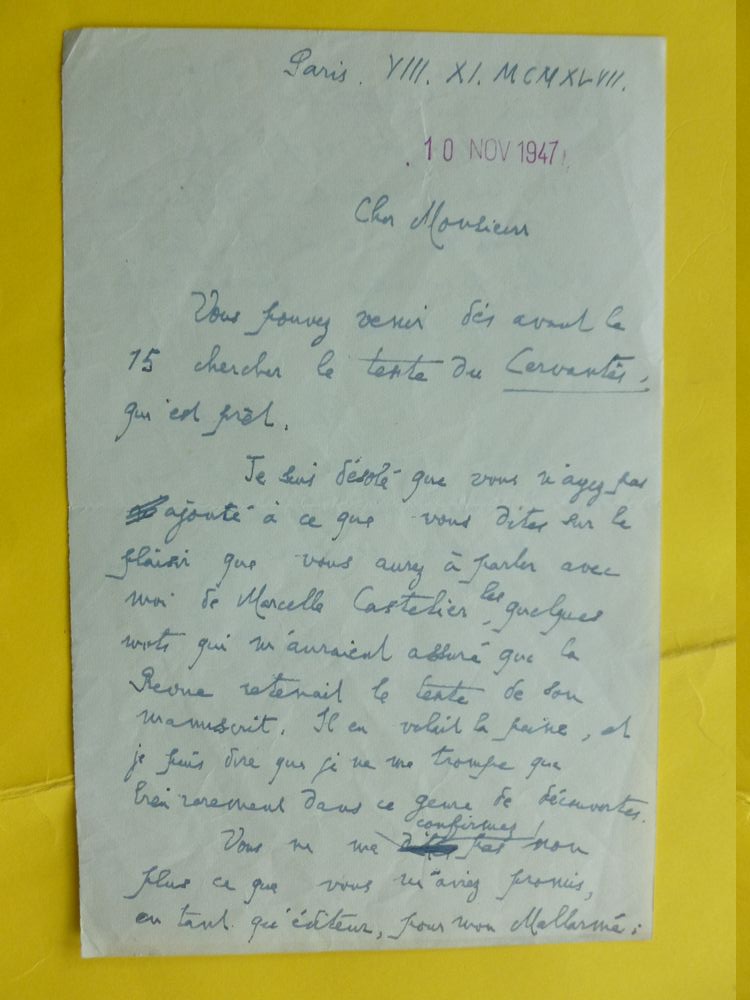 Paris. VIII. XI. MCMXLVII.
10 NOV 1947
Cher Monsieur
Vous pouvez venir dès avant le
15 chercher le texte du Cervantès,
qui est prêt.
Je suis désolé que vous n'ayez pas
ajouté à ce que vous dites sur le
plaisir que vous aurez à parler avec
moi de Marcelle Castelier, les quelques
mots qui m'auraient assuré que la
Revue retenait le texte de son
manuscrit. Il en valait la peine, et
je puis dire que je ne me trompe que
bien rarement dans ce genre de découvertes.
Vous ne me confirmez pas non
plus ce que vous m'aviez promis,
en tant qu'éditeur, pour mon Mallarmé :